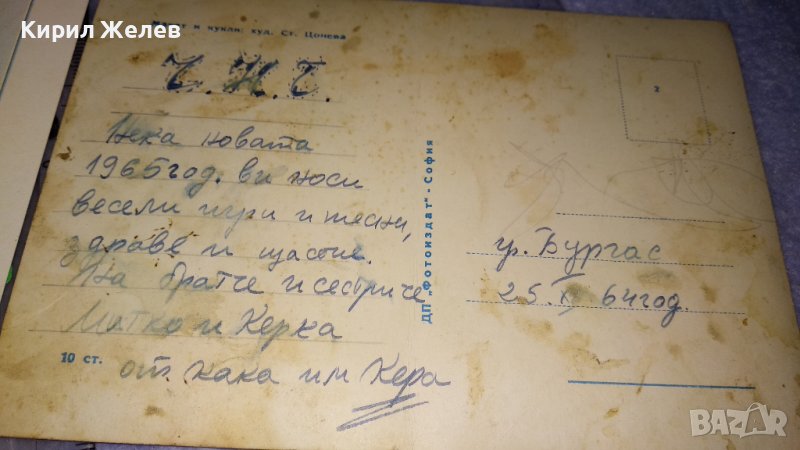 Кирил Желев
и кукли; худ. Ст. Цонева
Ч. Н. Г.
Нека новата
1965 год. ви носи
весели игри и песни,
здраве и щастие.
На братче и сестриче
Митко и Керка
от кака им Кера
10 ст.
ДП „Фотоиздат" - София
2
гр. Бургас
25. XII 64 год.
BAZAR